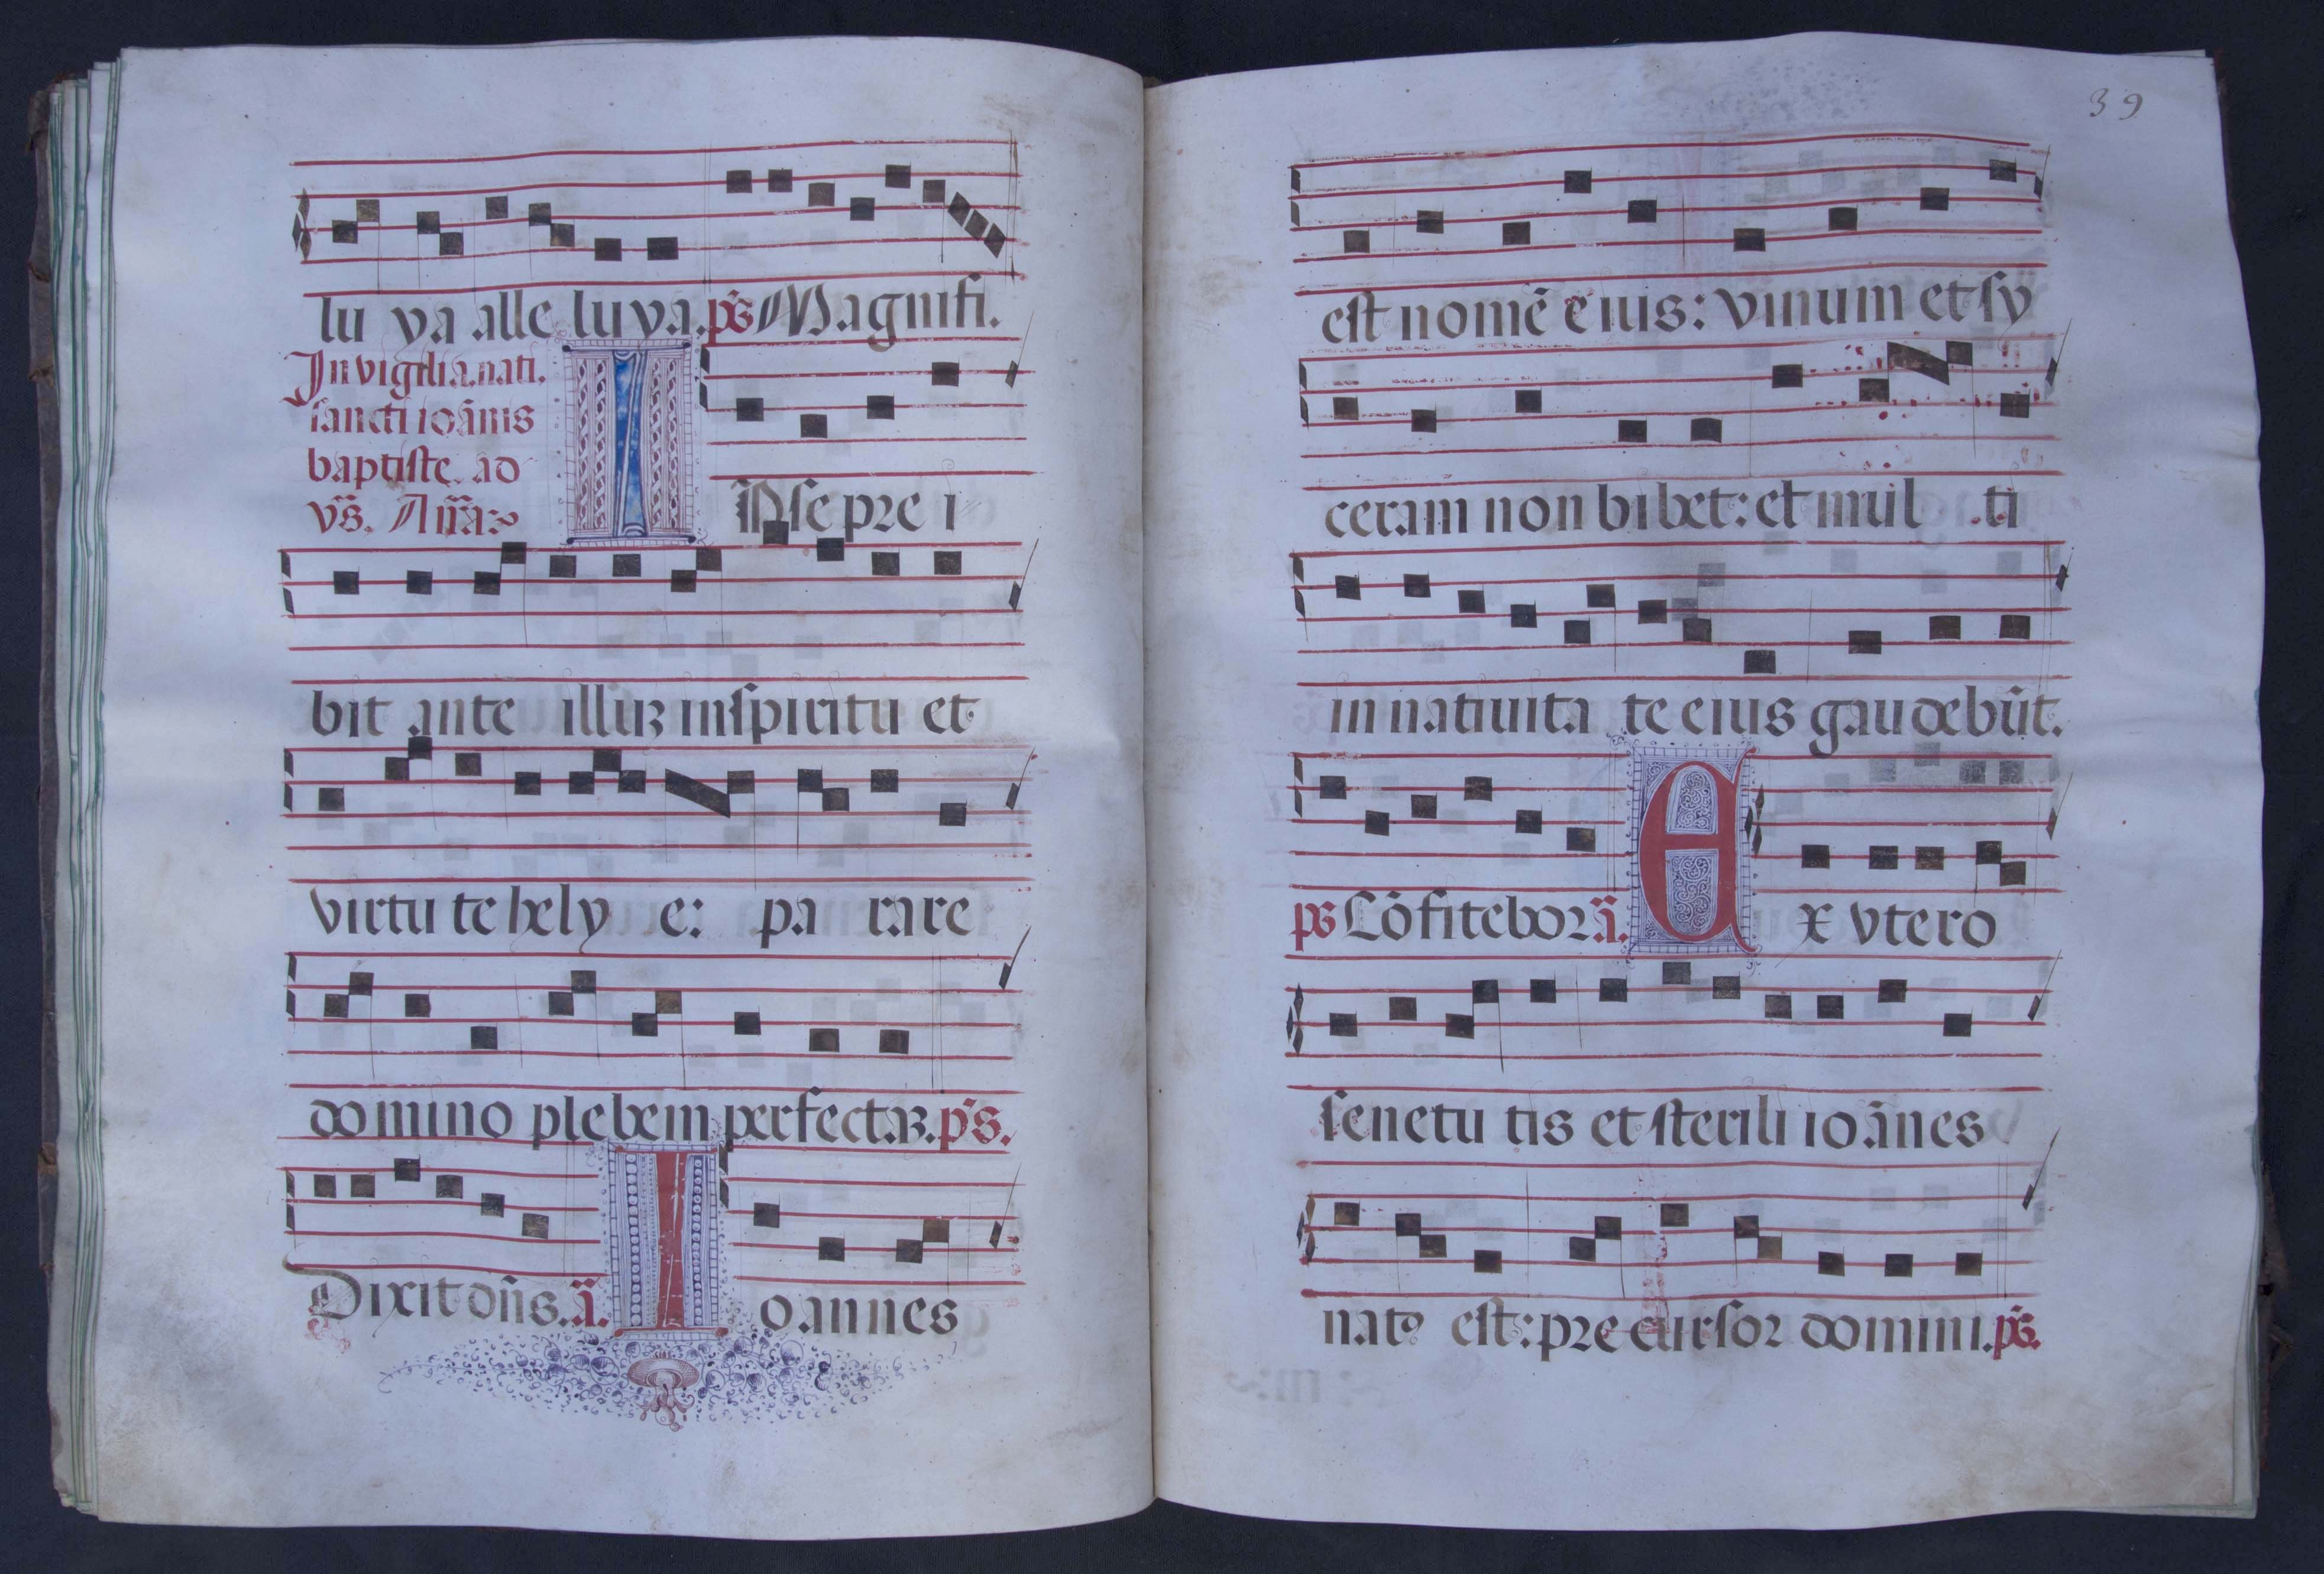 lu ya alle luya. ps̄ Magnifi.
In vigilia nati.
sancti ioānis
baptiste ad
vs̄. Añā
IPse pre i
bit ante illuꝫ inspiritu et
virtu te hely e: pa rare
domino plebem perfectaꝫ. ps̄.
Dixit dn̄s. ā. Ioannes
39
est nomē eius: vinum et sy
ceram non bibet: et mul ti
in natiuita te eius gaudebūt.
ps̄ Cōfitebor ā. Ex vtero
senetu tis et sterili ioānes
natꝰ est: precursor domini. ps̄.